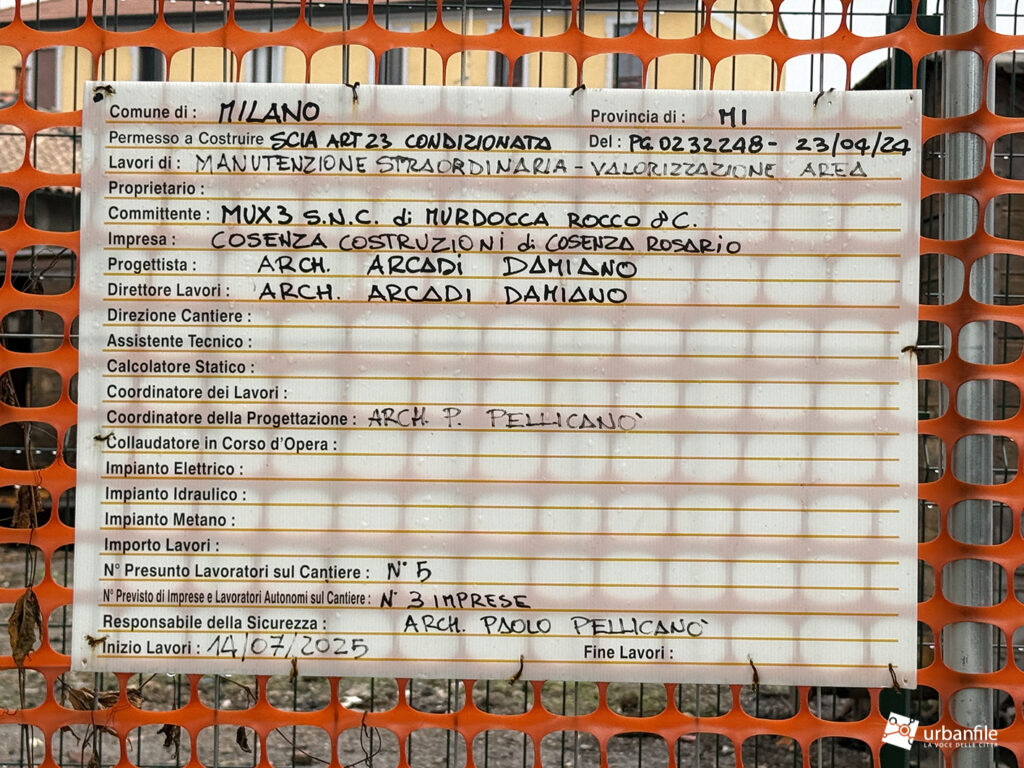 Comune di : MILANO Provincia di : MI
Permesso a Costruire SCIA ART 23 CONDIZIONATA Del : PG. 0232248 - 23/04/24
Lavori di : MANUTENZIONE STRAORDINARIA - VALORIZZAZIONE AREA
Proprietario :
Committente : MUX3 S.N.C. di MURDOCCA ROCCO & C.
Impresa : COSENZA COSTRUZIONI di COSENZA ROSARIO
Progettista : ARCH. ARCADI DAMIANO
Direttore Lavori : ARCH. ARCADI DAMIANO
Direzione Cantiere :
Assistente Tecnico :
Calcolatore Statico :
Coordinatore dei Lavori :
Coordinatore della Progettazione : ARCH. P. PELLICANO'
Collaudatore in Corso d'Opera :
Impianto Elettrico :
Impianto Idraulico :
Impianto Metano :
Importo Lavori :
N° Presunto Lavoratori sul Cantiere : N° 5
N° Previsto di Imprese e Lavoratori Autonomi sul Cantiere : N° 3 IMPRESE
Responsabile della Sicurezza : ARCH. PAOLO PELLICANO'
Inizio Lavori : 14/07/2025 Fine Lavori :
urbanfile
LA VOCE DELLE CITTÀ